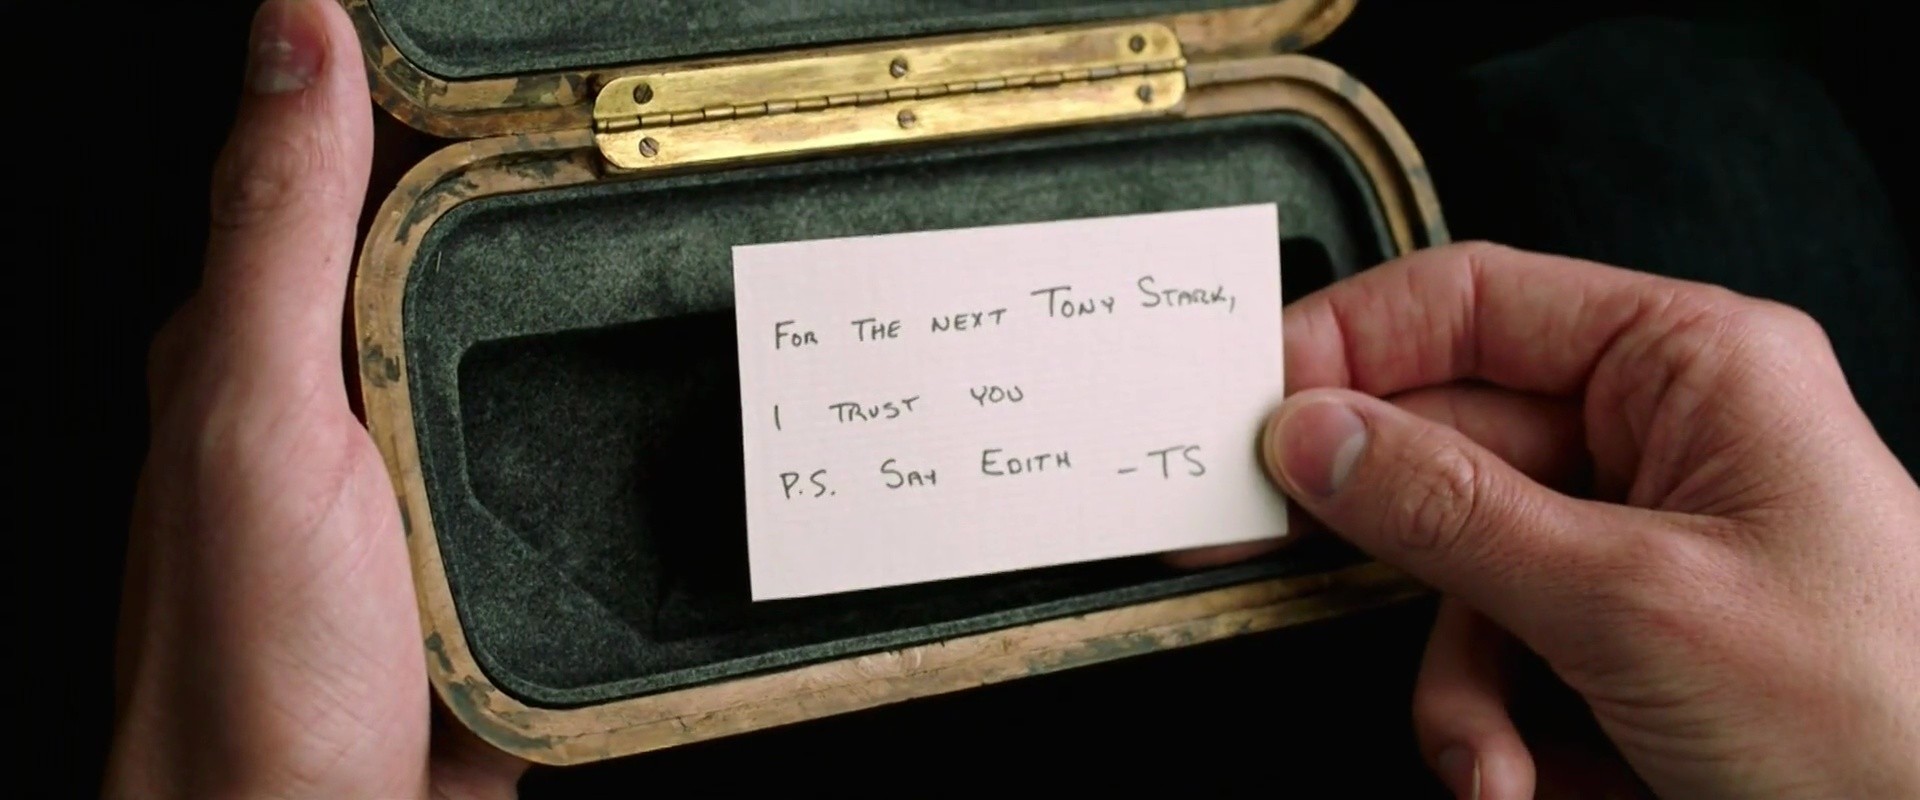 For the next Tony Stark,
I trust you
P.S. Say Edith -TS